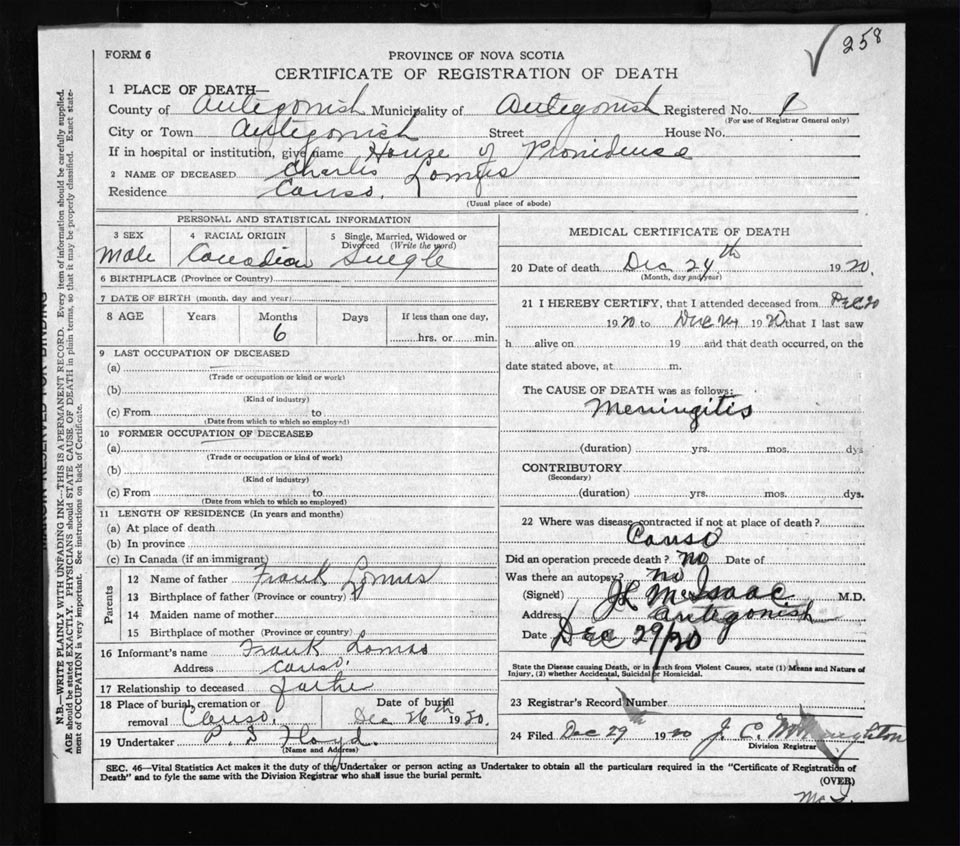 258
FORM 6
PROVINCE OF NOVA SCOTIA
CERTIFICATE OF REGISTRATION OF DEATH
1 PLACE OF DEATH—
County of Antigonish Municipality of Antigonish Registered No. 1
(For use of Registrar General only)
City or Town Antigonish Street House No.
If in hospital or institution, give name House of Providence
2 NAME OF DECEASED Charles
Residence Canso.
(Usual place of abode)
PERSONAL AND STATISTICAL INFORMATION
3 SEX 4 RACIAL ORIGIN 5 Single, Married, Widowed or Divorced (Write the word)
Male Canadian Single
6 BIRTHPLACE (Province or Country)
7 DATE OF BIRTH (month, day and year)
8 AGE Years Months Days If less than one day,
6 hrs. or min.
9 LAST OCCUPATION OF DECEASED
(a)
(Trade or occupation or kind or work)
(b)
(Kind of industry)
(c) From to
(Date from which to which so employed)
10 FORMER OCCUPATION OF DECEASED
(a)
(Trade or occupation or kind of work)
(b)
(Kind of industry)
(c) From to
(Date from which to which so employed)
11 LENGTH OF RESIDENCE (In years and months)
(a) At place of death
(b) In province
(c) In Canada (if an immigrant)
Parents
12 Name of father Frank
13 Birthplace of father (Province or country)
14 Maiden name of mother
15 Birthplace of mother (Province or country)
16 Informant's name Frank Lomas
Address Canso.
17 Relationship to deceased father
18 Place of burial, cremation or removal Canso. Date of burial Dec 26th 1920.
19 Undertaker P. S. Floyd.
(Name and Address)
MEDICAL CERTIFICATE OF DEATH
20 Date of death Dec 24th 1920.
(Month, day and year)
21 I HEREBY CERTIFY, that I attended deceased from Dec 20
1920 to Dec 24 1920 that I last saw
h alive on 19 and that death occurred, on the
date stated above, at m.
The CAUSE OF DEATH was as follows:
Meningitis
(duration) yrs. mos. dys
CONTRIBUTORY
(Secondary)
(duration) yrs. mos. dys.
22 Where was disease contracted if not at place of death?
Canso
Did an operation precede death? no Date of
Was there an autopsy? no
(Signed) McIsaac M.D.
Address Antigonish
Date Dec 29/20
State the Disease causing Death, or in death from Violent Causes, state (1) Means and Nature of
Injury, (2) whether Accidental, Suicidal or Homicidal.
23 Registrar's Record Number
24 Filed Dec 29th 1920 J. C.
Division Registrar
SEC. 46—Vital Statistics Act makes it the duty of the Undertaker or person acting as Undertaker to obtain all the particulars required in the "Certificate of Registration of
Death" and to fyle the same with the Division Registrar who shall issue the burial permit.
(OVER)
MARGIN RESERVED FOR BINDING
N.B.—WRITE PLAINLY WITH UNFADING INK—THIS IS A PERMANENT RECORD. Every item of information should be carefully supplied.
AGE should be stated EXACTLY. PHYSICIANS should STATE CAUSE OF DEATH in plain terms, so that it may be properly classified. Exact state-
ment of OCCUPATION is very important. See instructions on back of Certificate.